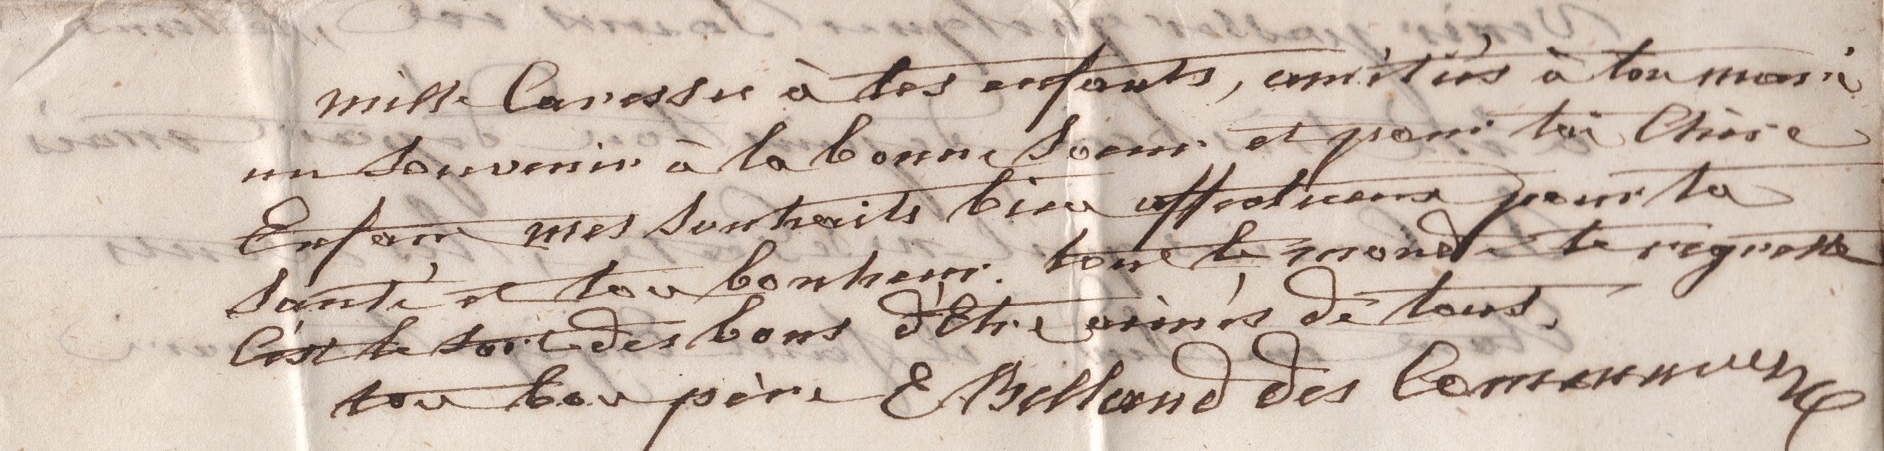 mille Caresses à tes enfants, amitiés à ton mari
un souvenir à la bonne Soeur et pour toi Chère
Enfant mes souhaits bien affectueux pour ta
santé et ton bonheur. tout le monde te regrette
C'est le sort des bons d'Etre aimés de tous.
ton bon père E Billaud des Communes